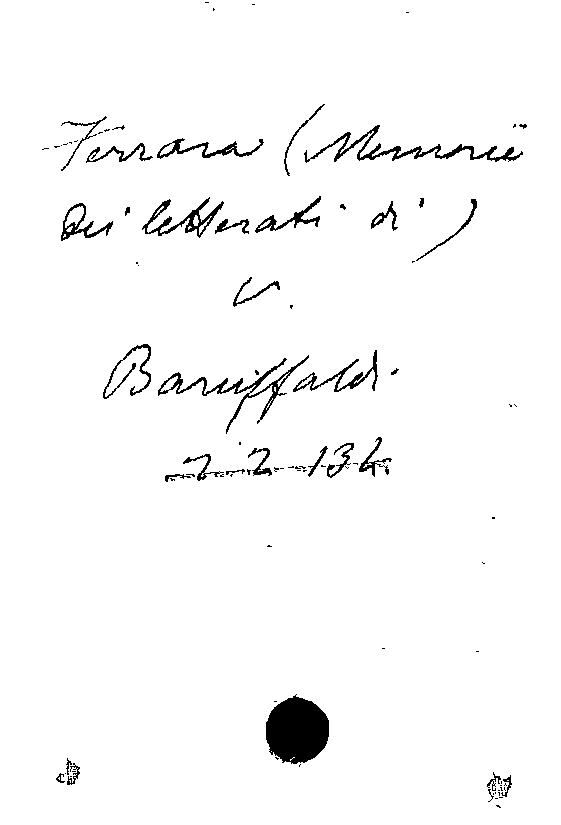 Ferrara (Memorie
dei letterati di)
v.
Baruffaldi
2 2 134.